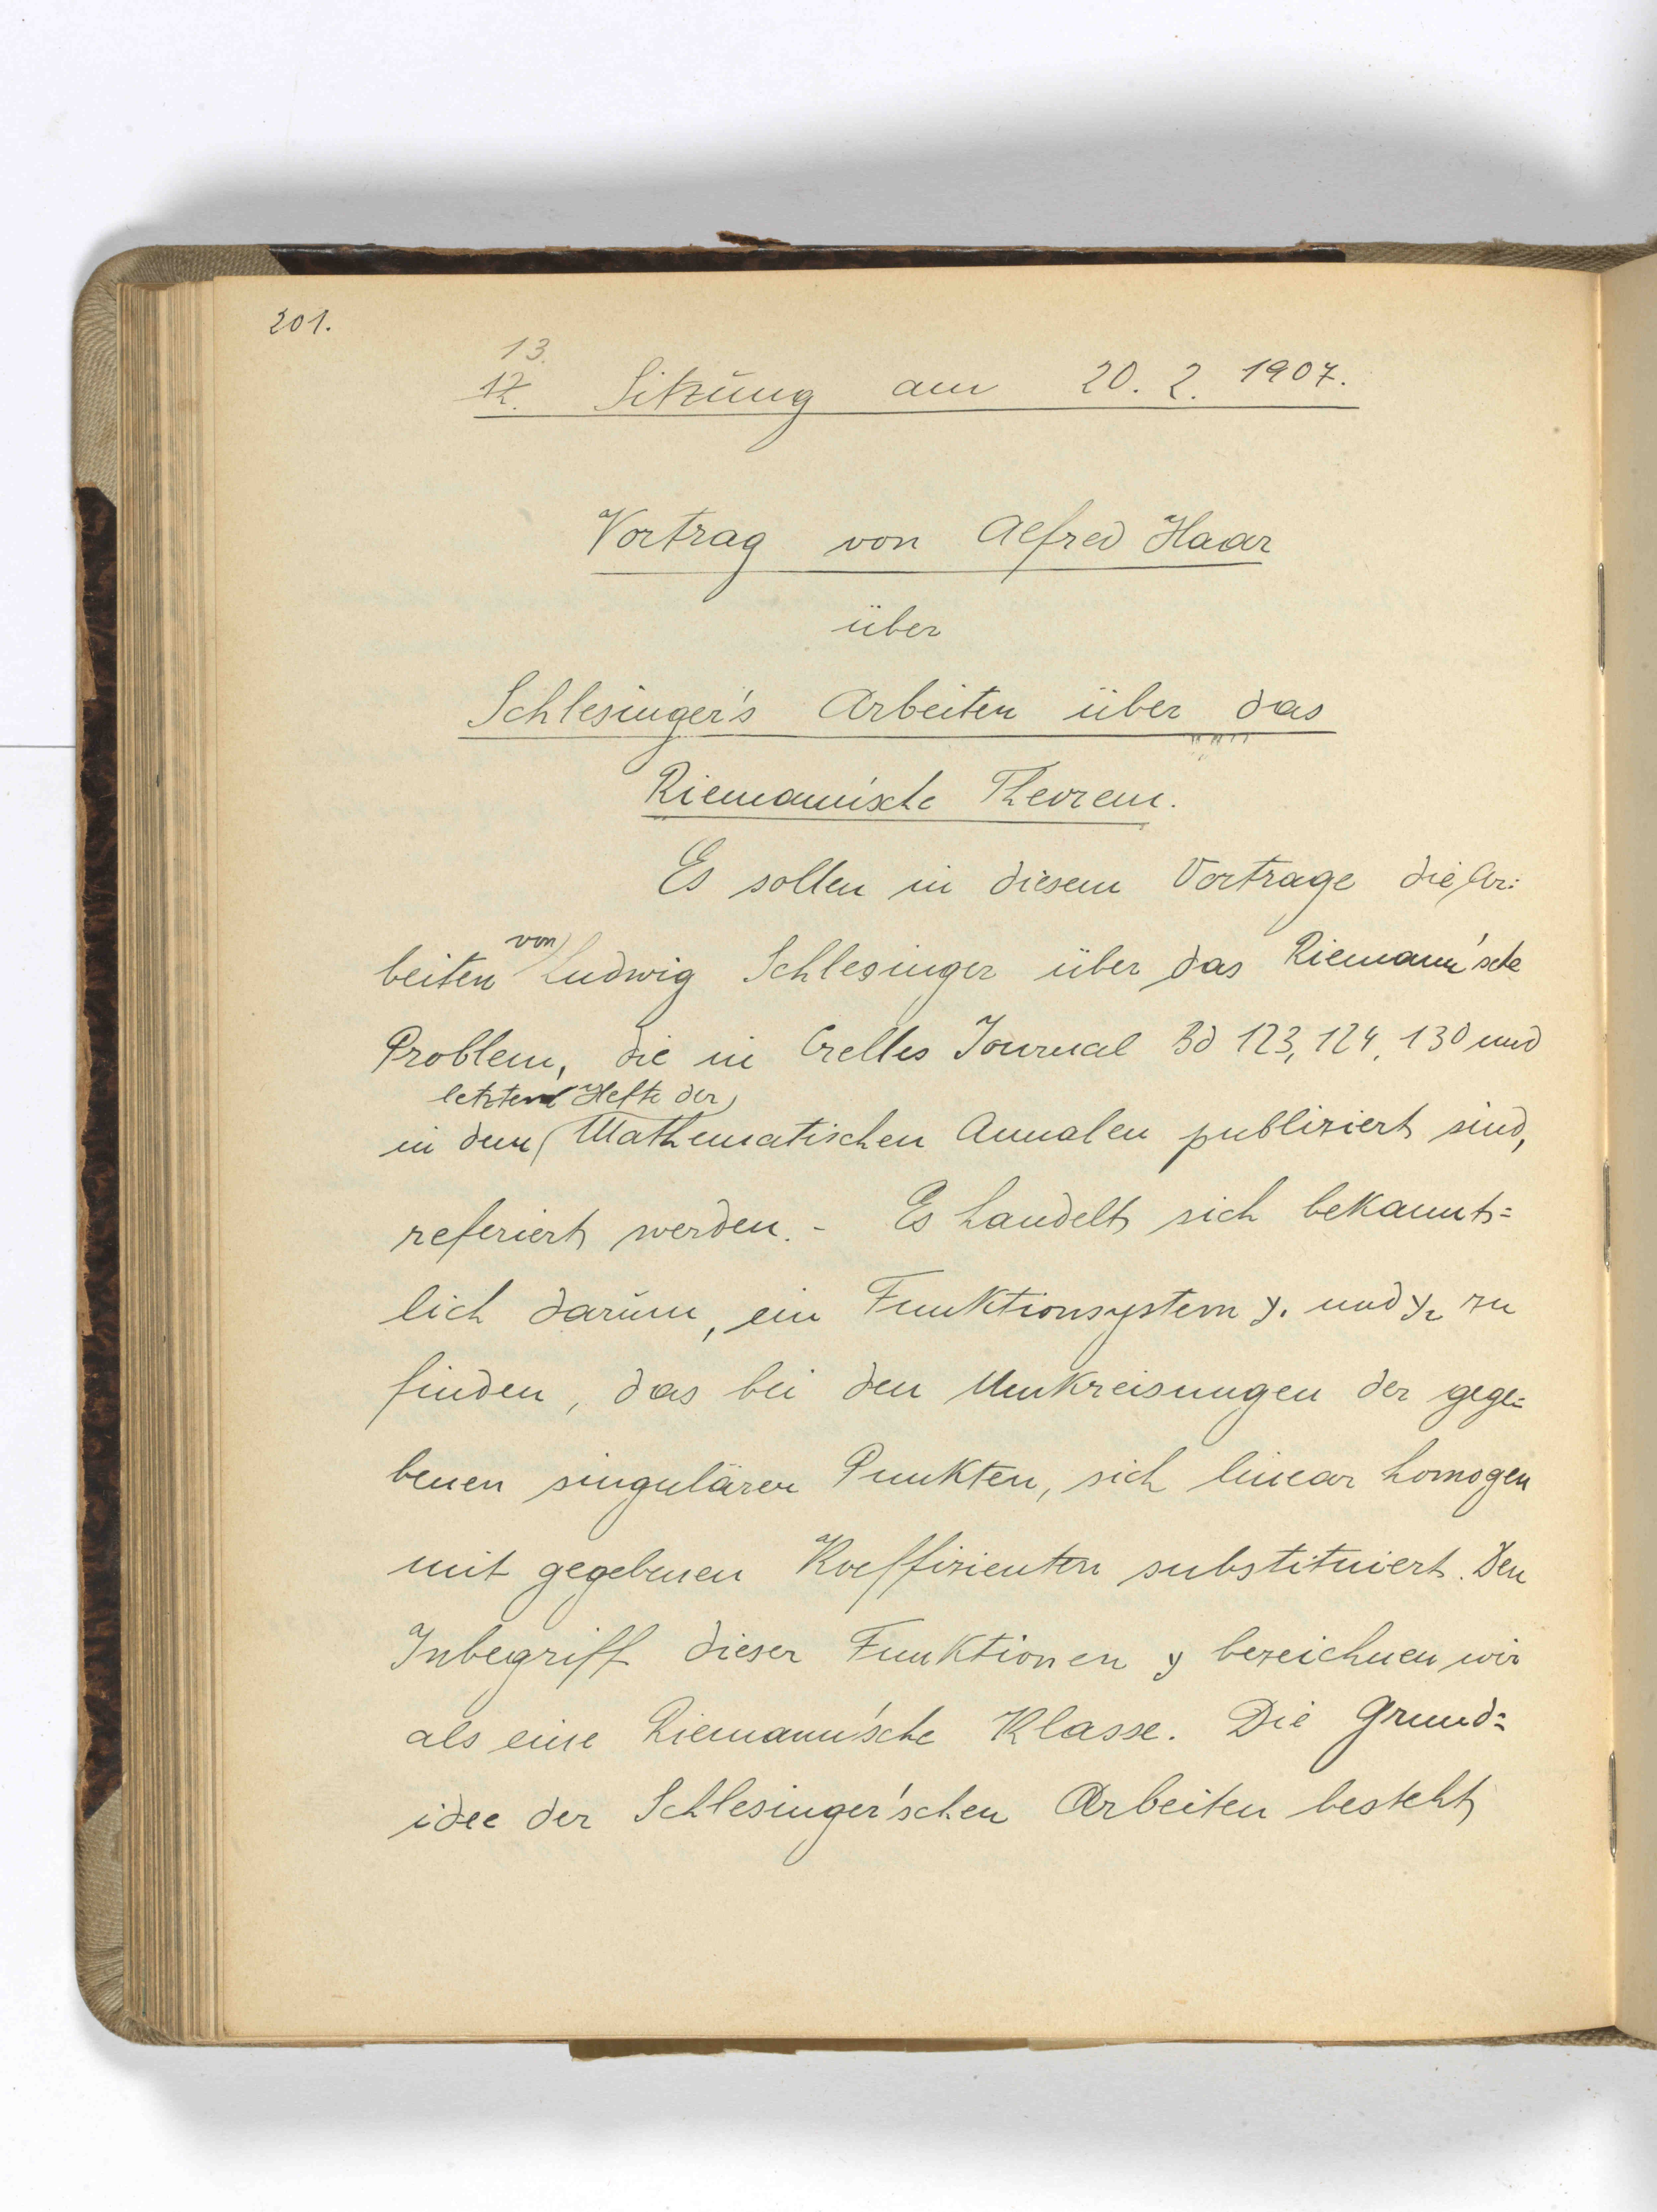 201.
13.
12. Sitzung am 20. 2. 1907.
Vortrag von Alfred Haar
über
Schlesinger's Arbeiten über das
Riemann'sche Theorem.
Es sollen in diesem Vortrage die Ar:
von
beiten Ludwig Schlesinger über das Riemann'sche
Problem, die in Crelles Journal Bd 123, 124, 130 und
letzten Hefte der
in dem Mathematischen Annalen publiziert sind,
referiert werden. - Es handelt sich bekannt=
lich darum, ein Funktionsystem y₁ und y₂ zu
finden, das bei den Umkreisungen der gege=
benen singulären Punkten, sich linear homogen
mit gegebenen Koeffizienten substituiert. Den
Inbegriff dieser Funktionen y bezeichnen wir
als eine Riemann'sche Klasse. Die Grund=
idee der Schlesinger'schen Arbeiten besteht